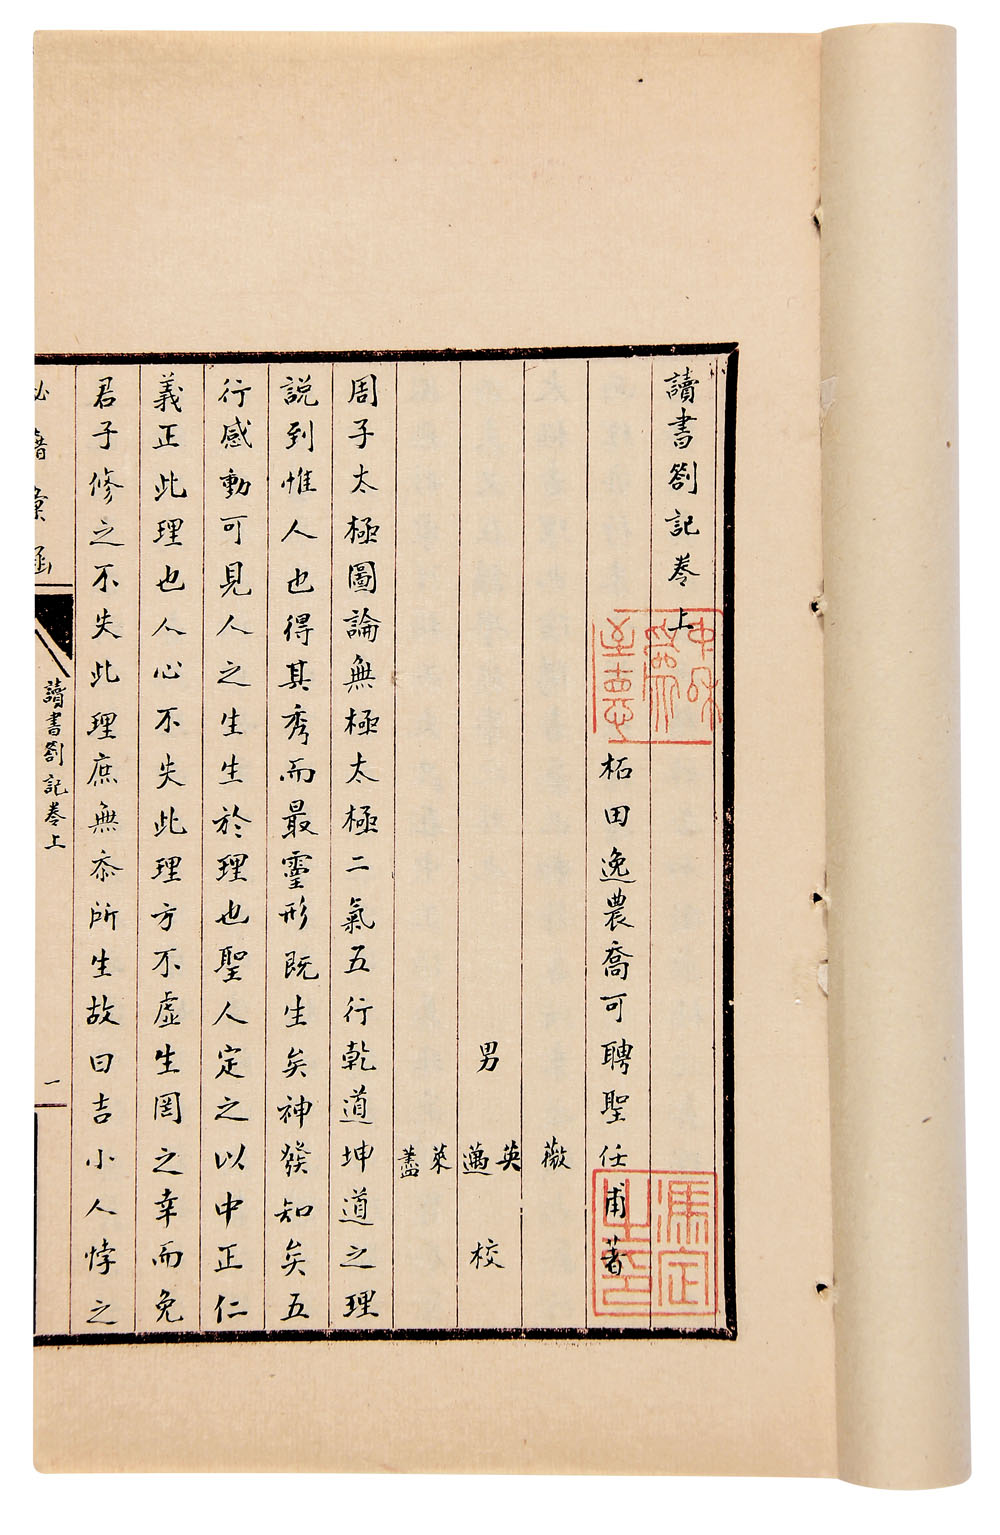 讀書劄記卷上
柘田逸農喬可聘聖任甫著
薇
男 英 邁 校
萊 藎
周子太極圖論無極太極二氣五行乾道坤道之理
説到惟人也得其秀而最靈形既生矣神發知矣五
行感動可見人之生生於理也聖人定之以中正仁
義正此理也人心不失此理方不虛生罔之幸而免
君子修之不失此理庶無忝所生故曰吉小人悖之
讀書劄記卷上
一
馮定之印